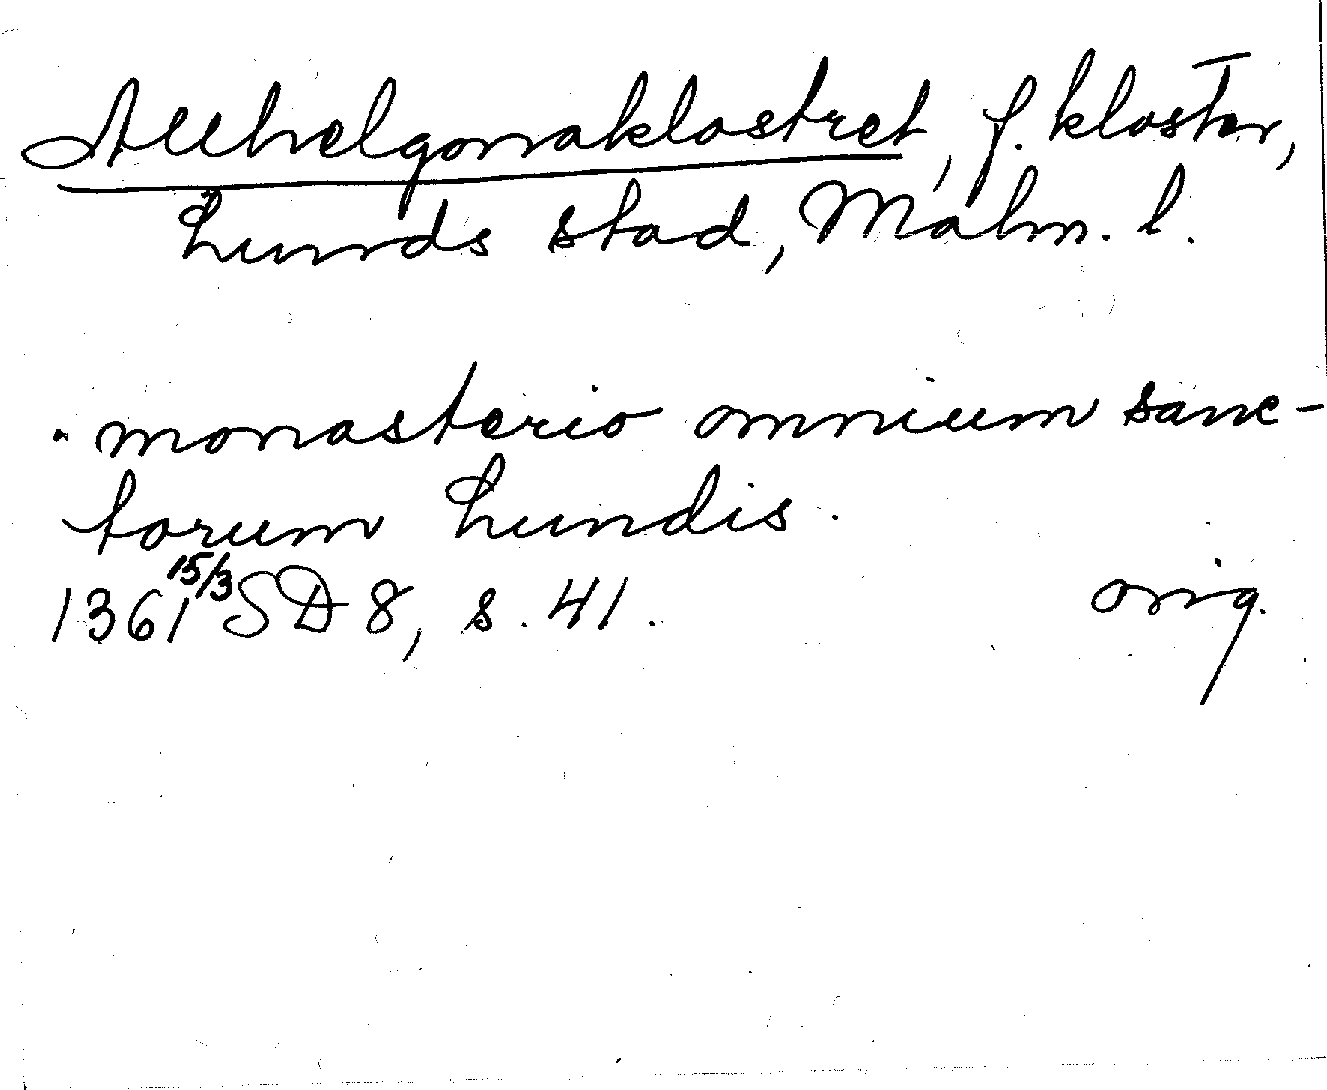 Allhelgonaklostret, f. kloster,
Lunds stad, Malm. l.
monasterio omnium sanc-
torum Lundis.
1361 15/3 SD 8, s. 41. orig.